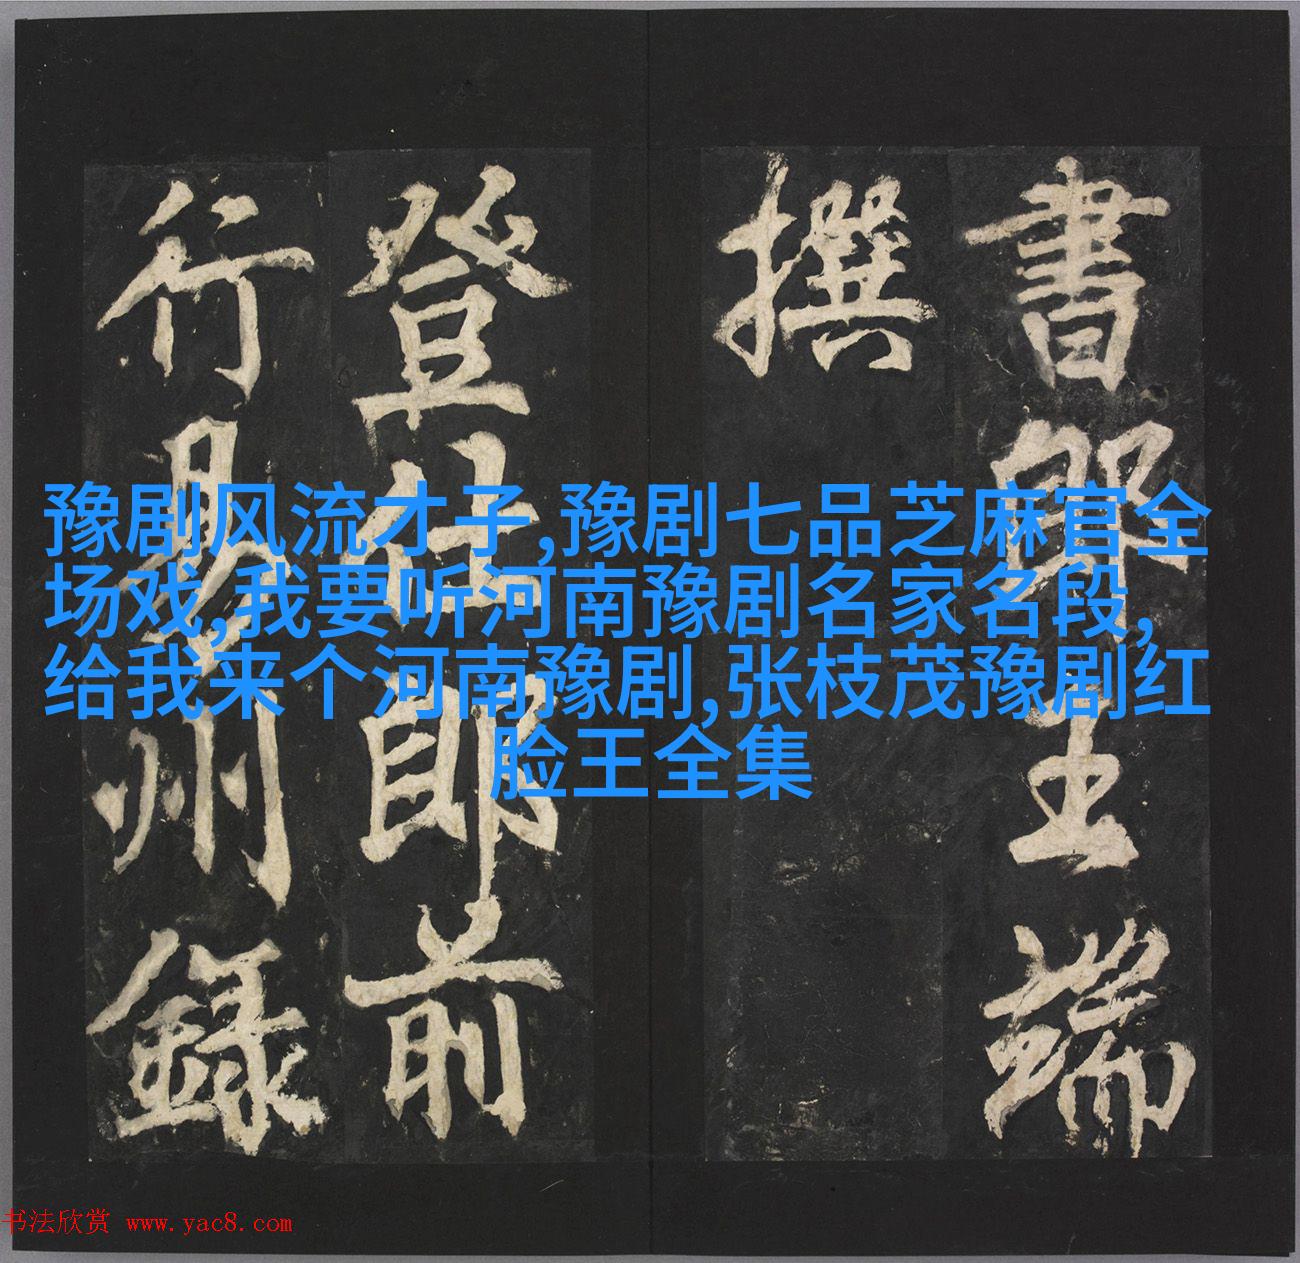 書郎王端
撰
登仕郎前
行易州録
豫剧风流才子,豫剧七品芝麻官全
场戏,我要听河南豫剧名家名段,
给我来个河南豫剧,张枝茂豫剧红
脸王全集
书法欣赏 www.yac8.com